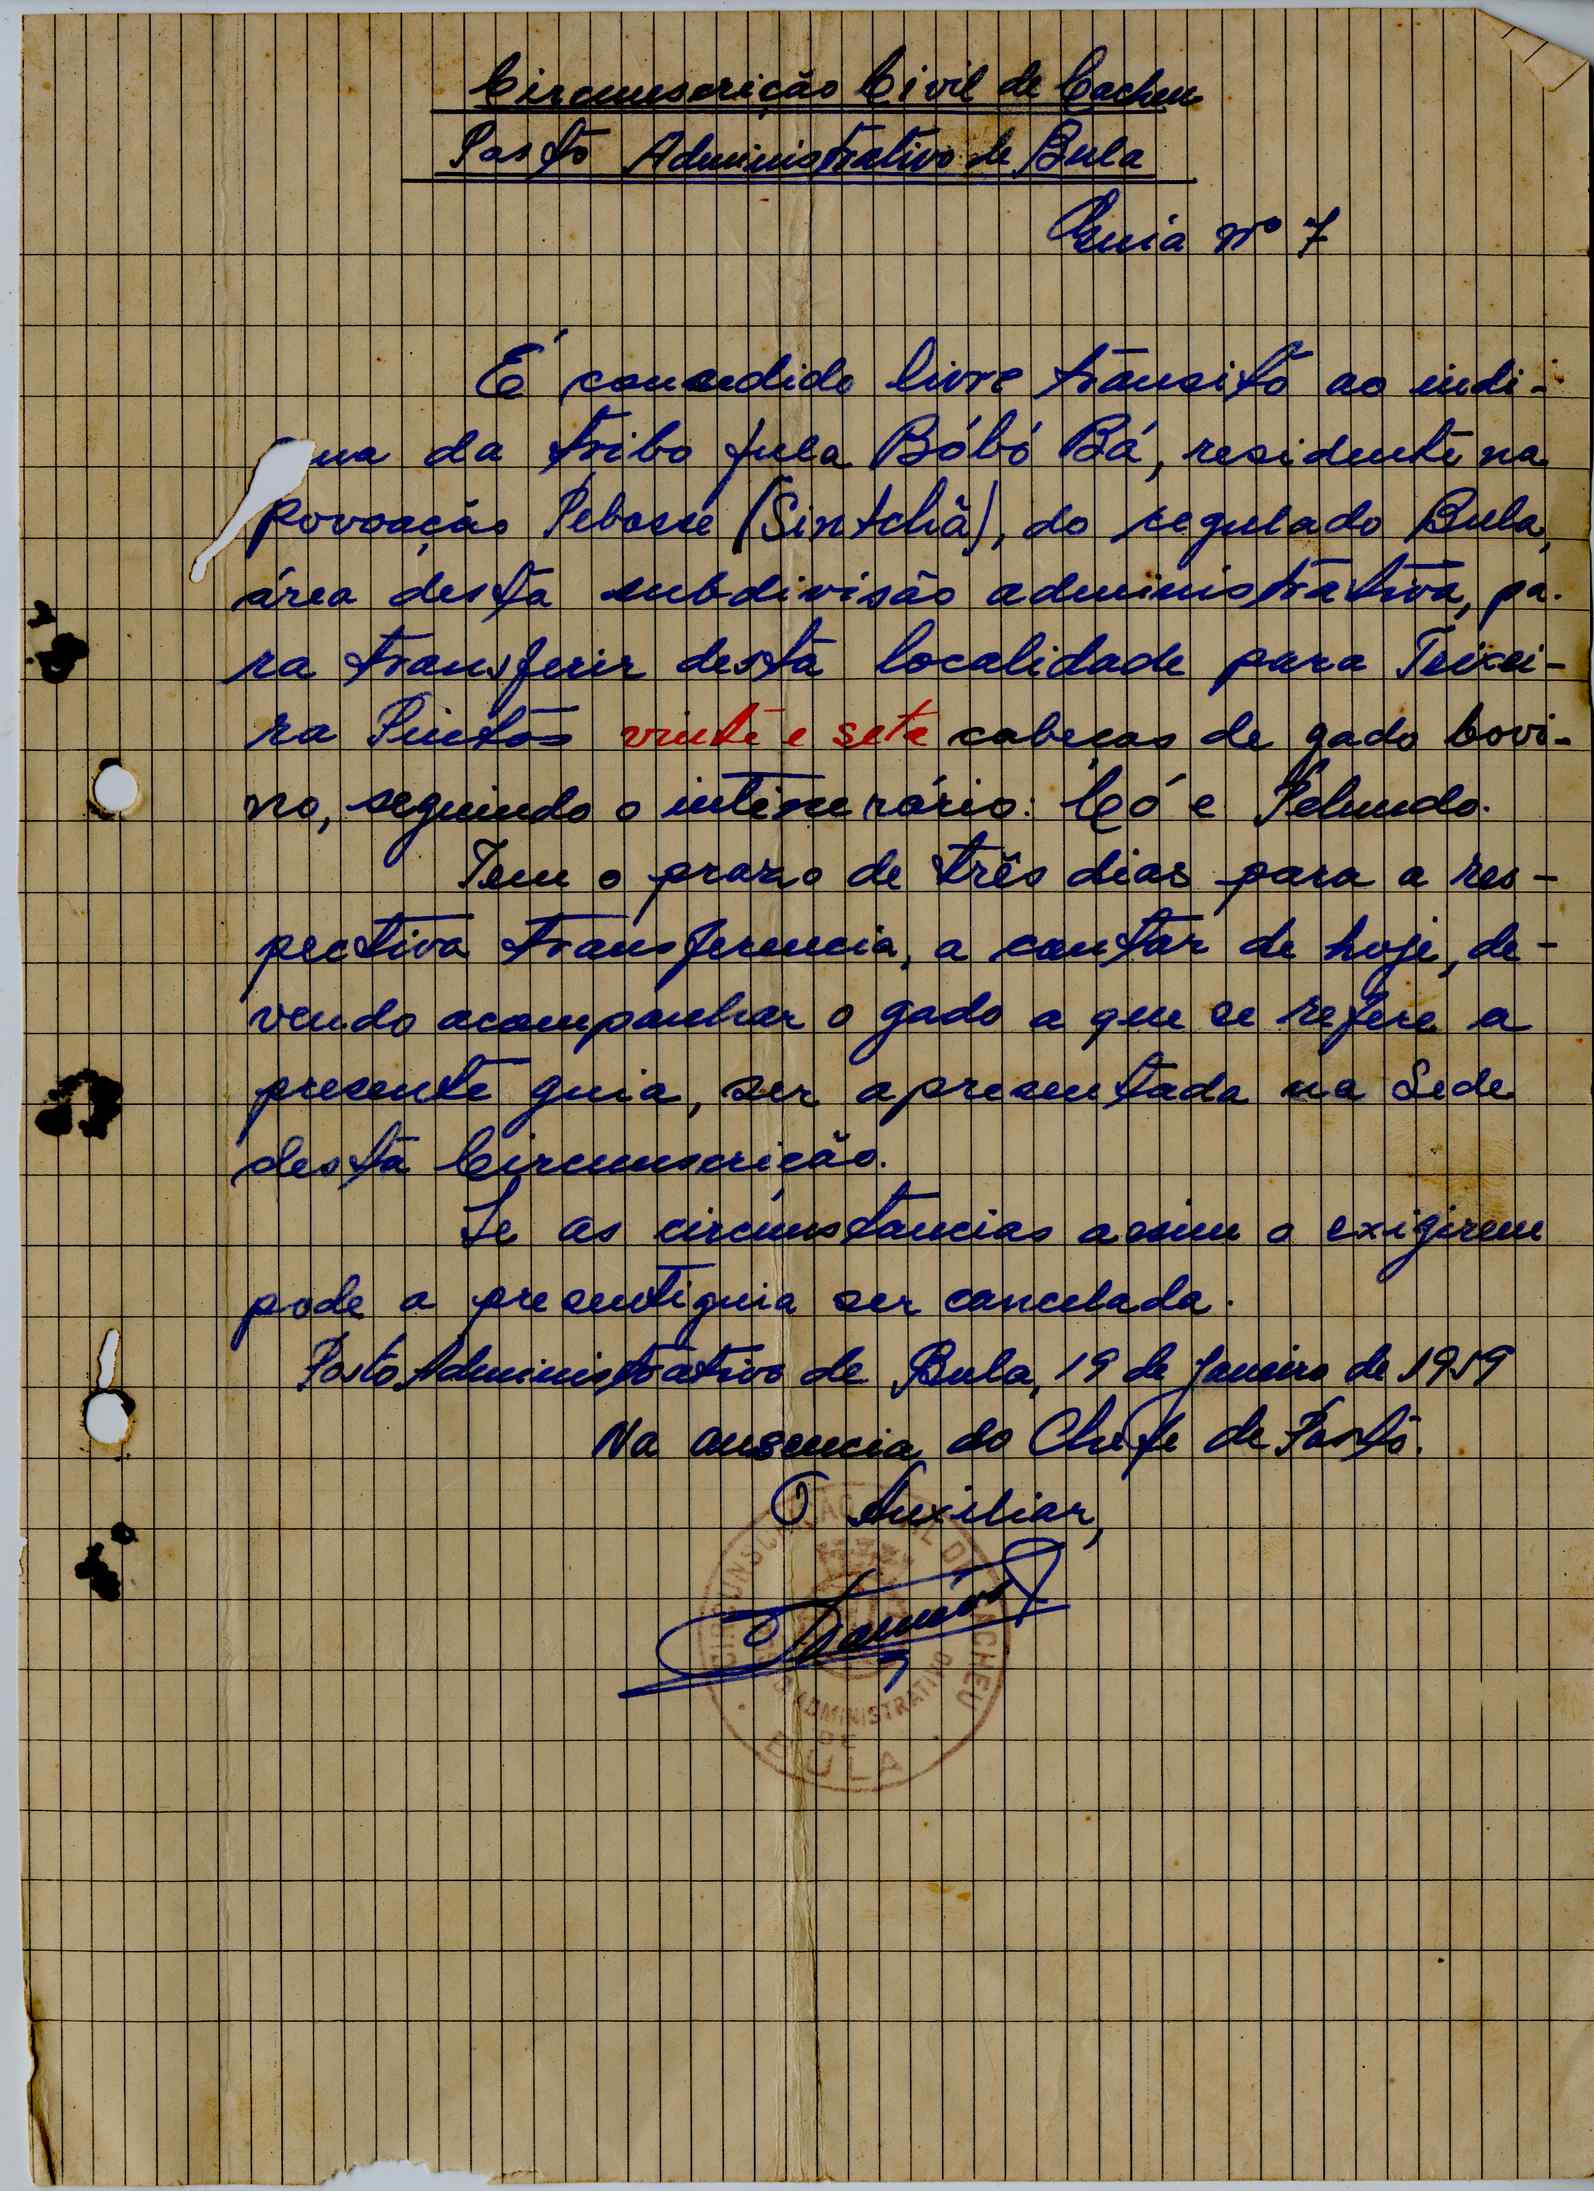 Circunscrição Civil de Cacheu
Posto Administrativo de Bula
Guia nº 7
É concedido livre trânsito ao indi-
na da tribo fula Bóbó Bá, residente na
povoação Pebasse (Sintchã), do regulado Bula,
área desta subdivisão administrativa, pa-
ra transferir desta localidade para Teixei-
ra Pinto vinte e sete cabeças de gado bovi-
no, seguindo o intinerário: Có e Pelundo.
Tem o prazo de três dias para a res-
pectiva transferencia, a contar de hoje, de-
vendo acompanhar o gado a que se refere a
presente guia, ser apresentada na Sede
desta Circunscrição.
Se as circunstancias assim o exigirem
pode a presente guia ser cancelada.
Posto Administrativo de Bula, 19 de Janeiro de 1959
Na ausencia do Chefe de Posto.
O Auxiliar,
CIRCUNSCRIÇÃO CIVIL DE CACHEU
POSTO ADMINISTRATIVO
DE
BULA